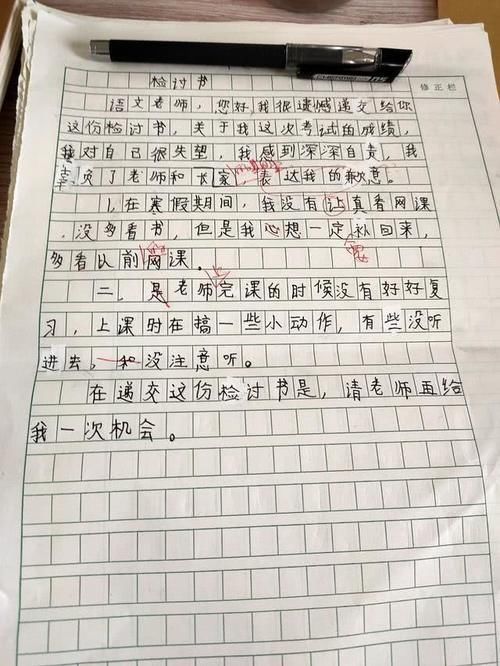 修正栏
检讨书
语文老师，您好，我很遗憾递交给你
这份检讨书，关于我这次考试的成绩，
我对自己很失望，我感到深深自责，我
辜负了老师和家，表达我的歉意。
1，在寒假期间，我没有让真看网课
，没多看书，但是我心想一定补回来，
多看以前网课。
二，是老师完课的时候没有好好复
习，上课时在搞一些小动作，有些没听
进去，和没注意听。
在递交这份检讨书是，请老师再给
我一次机会。